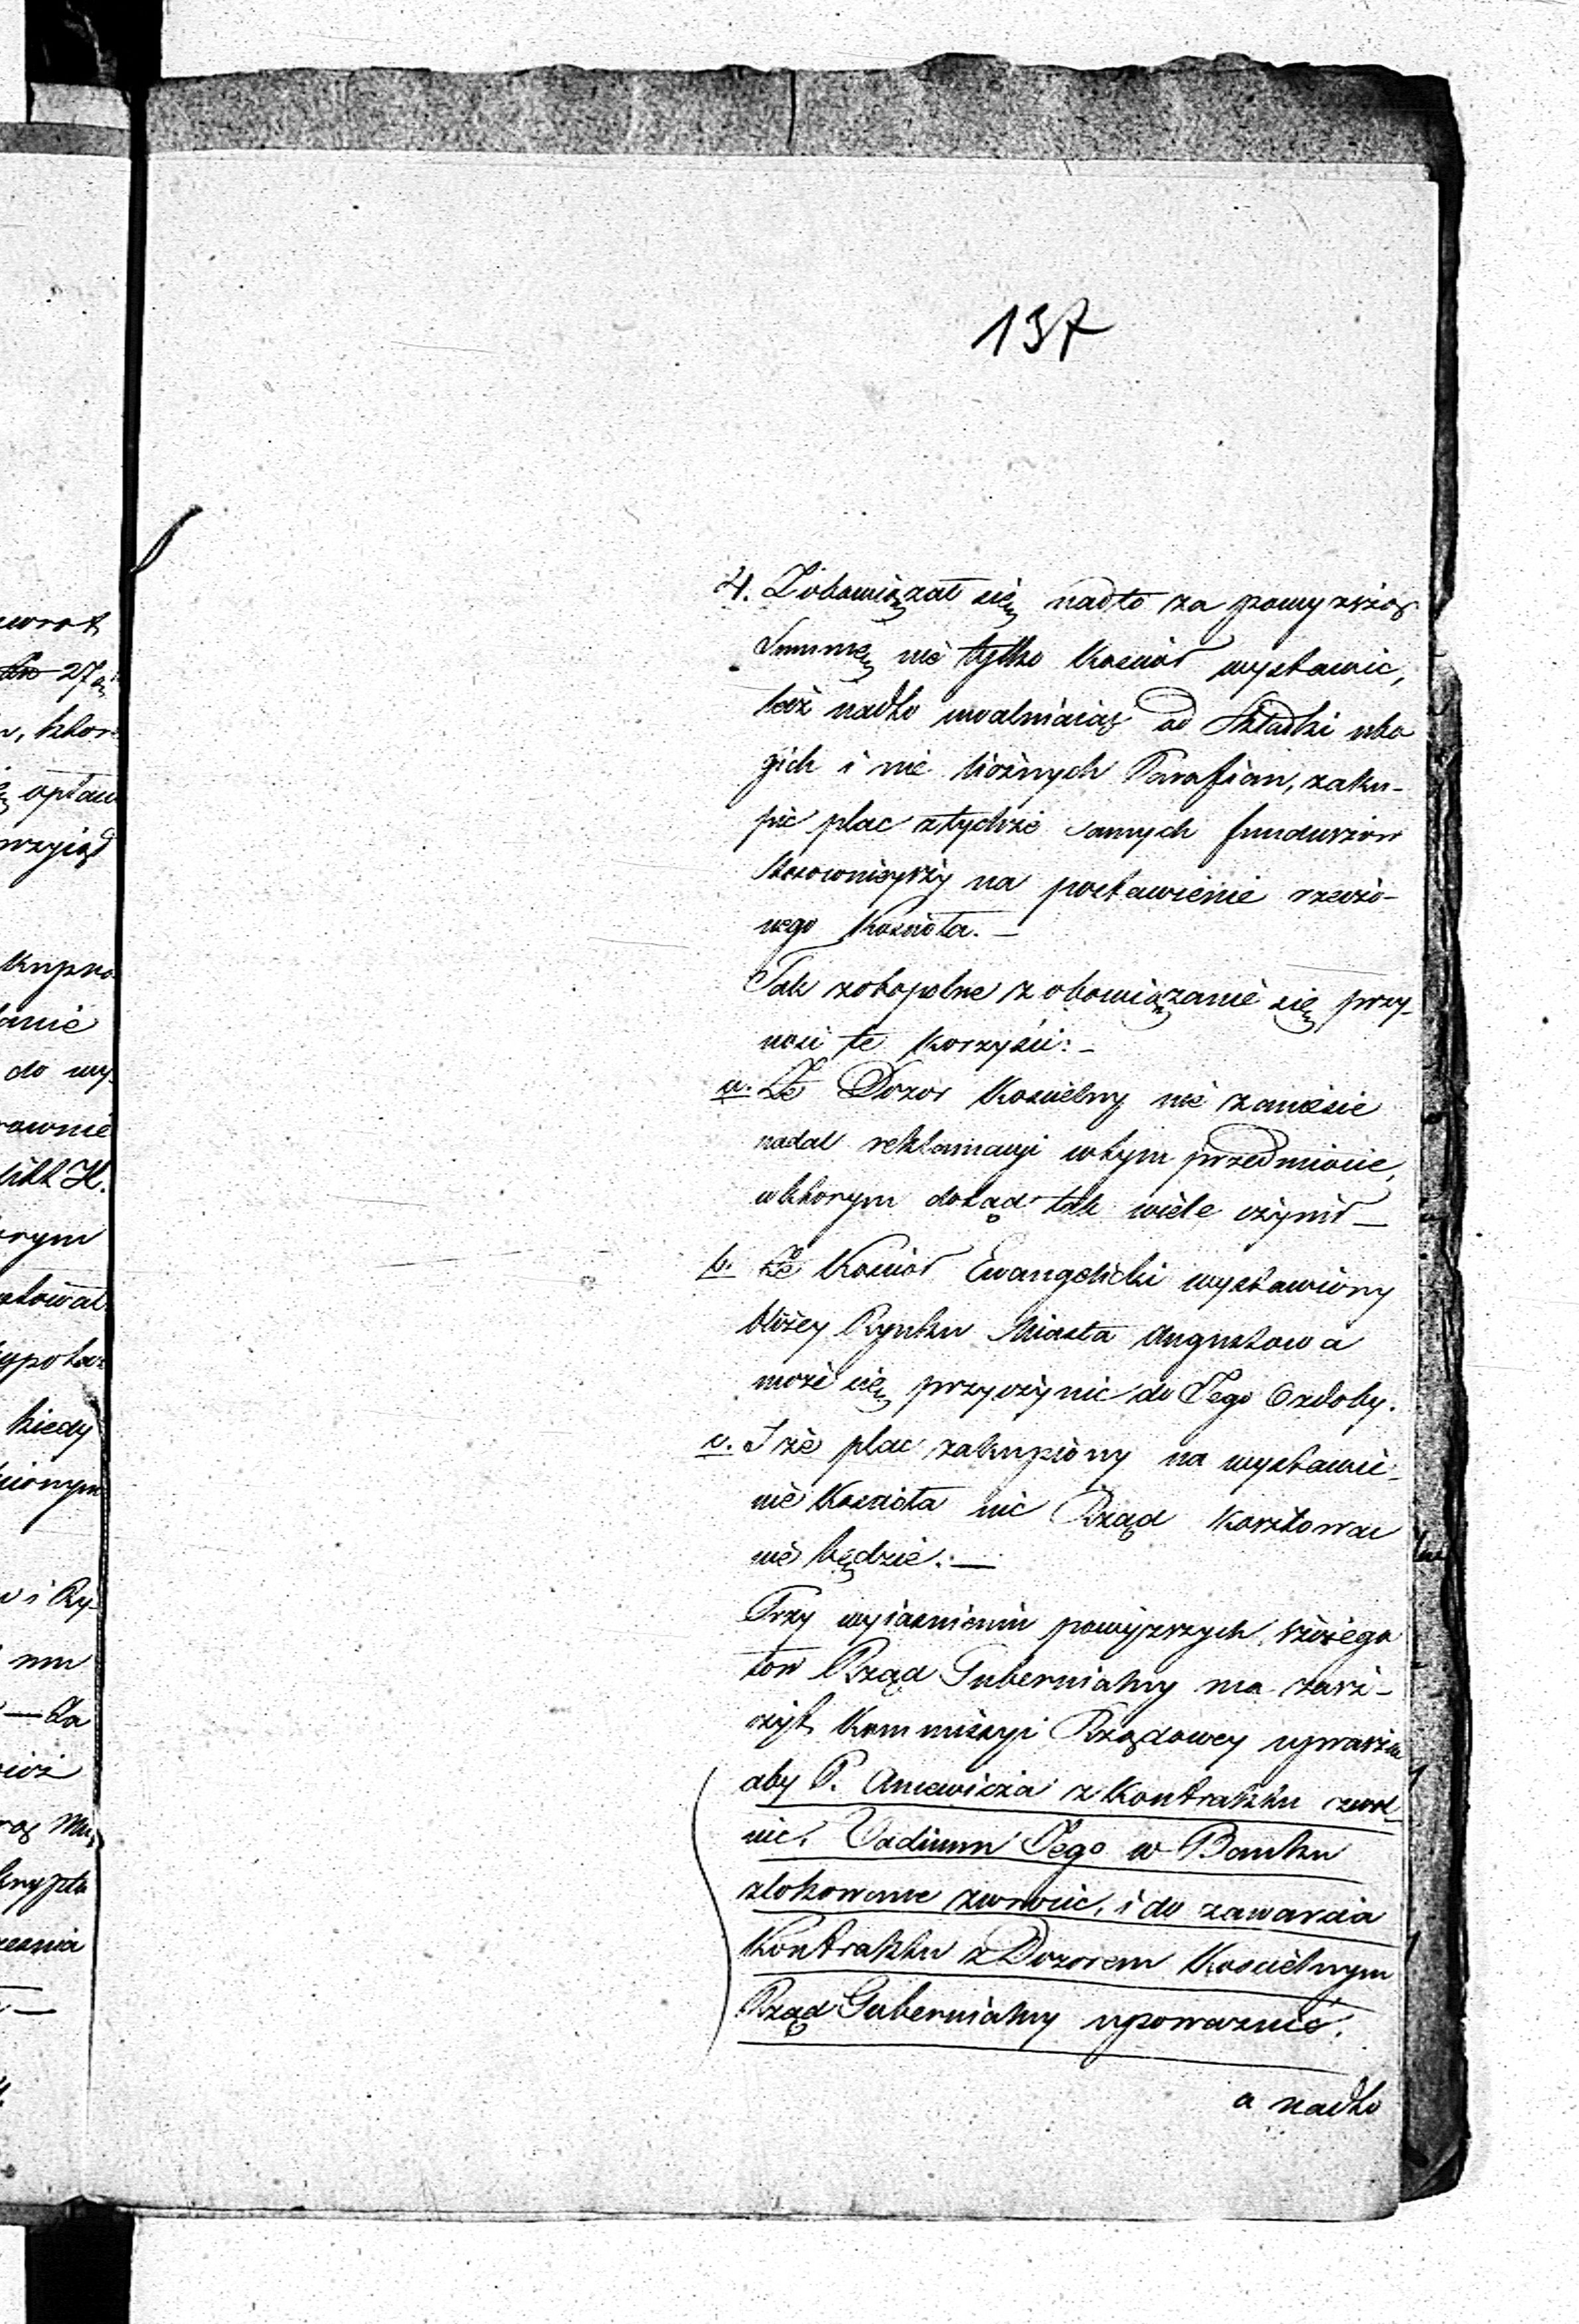 137
4. Zobowiązał się nadto za powyższą
Summę nie tylko Kosciół wystawic,
lecz nadto uwalniaiąc od Składki ubo
gich i nie licznych Parafian, zaku-
pic plac z tychże samych funduszow
stosownieyszy na postawienie rzeczo-
nego Koscioła. —
Tak zobopolne zobowiązanie się przy-
nosi te korzyści: -
a. Że Dozor Koscielny nie zaniesie
nadal reklamacyi w tym przedmiocie,
w ktorym dotąd tak wiele czynił —
b. Że Kosciół Ewangelicki wystawiony
bliżey Rynku Miasta Augustowa
może się przyczynic do Jego Ozdoby.
c. I że plac zakupiony na wystawie-
nie Koscioła nic Rząd kosztowac
nie będzie. —
Przy wyiasnieniu powyższych szczegó
łow Rząd Gubernialny ma zasz-
czyt Kommissyi Rządowey upraszac
aby P. Aniewicza z Kontraktu zwol
nic, Vadium Jego w Banku
zlokowane zwrócic, i do zawarcia
Kontraktu z Dozorem Koscielnym
Rząd Gubernialny upoważnić.
a nadto
wrot
27
opław
Kupno
anie
do wy
ownie
rym
kiedy
ionym
i Ry-
nu
— Za